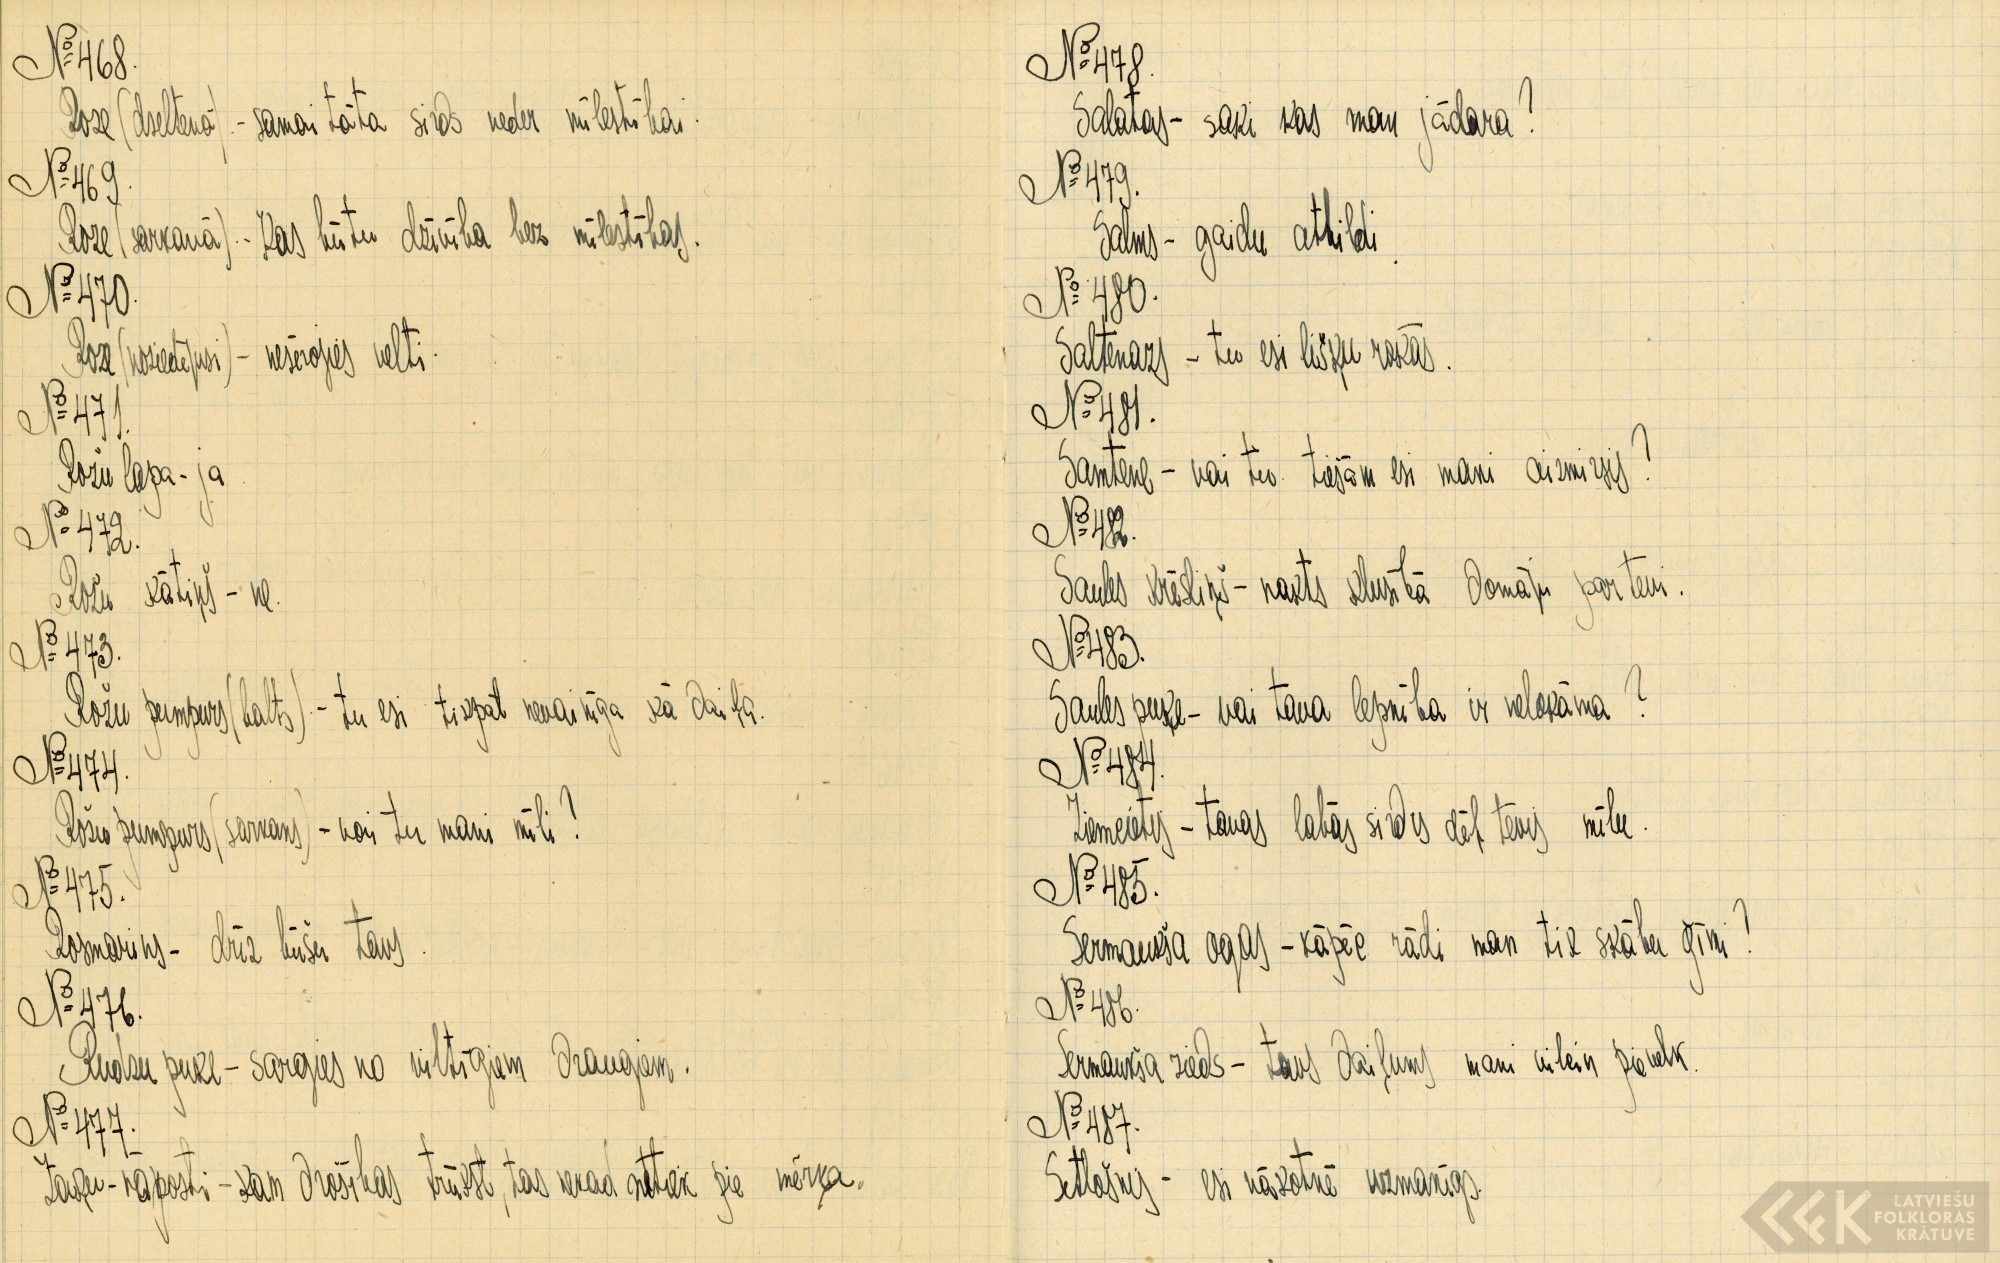 №468.
Roze (dzeltenā). - samaitāta sirds neder mīlestībai.
№469.
Roze (sarkanā). - Kas būtu dzīvība bez mīlestības.
№470.
Roze (noziedējusi) - nešērojies velti.
№471.
Rožu lapa - ja
№472.
Rožu kātiņš - ne.
№473.
Rožu pumpurs (balts). - tu esi tikpat nevainīga kā daiļa.
№474.
Rožu pumpurs (sarkans) - vai tu mani mīli?
№475.
Rosmariņs - drīz būšu tavs.
№476.
Rudzu puķe - sargies no viltīgiem draugiem.
№477.
Zaķu-kāposti - kam drošības trūkst, tas nekad netiek pie mērķa.
№478.
Salatas - saki kas man jādara?
№479.
Salms - gaidu atbildi.
№480.
Saltenazs - tu esi lišķu rokās.
№481.
Samtene - vai tu tiešām esi mani aizmirsis?
№482.
Saules krēsliņš - nakts klusībā domāju par tevi.
№483.
Saules puķe - vai tava lepnība ir nelokāma?
№484.
Ziemcietis - tavas labās sirds dēļ tevis mīlu.
№485.
Sermaukša ogas - kāpēc rādi man tik skābu ģīmi?
№486.
Sermaukša zieds - tavs daiļums mani vilcin pievelk.
№487.
Setlošņis - esi nākotnē uzmanīgs.
LATVIEŠU
FOLKLORAS
KRĀTUVE